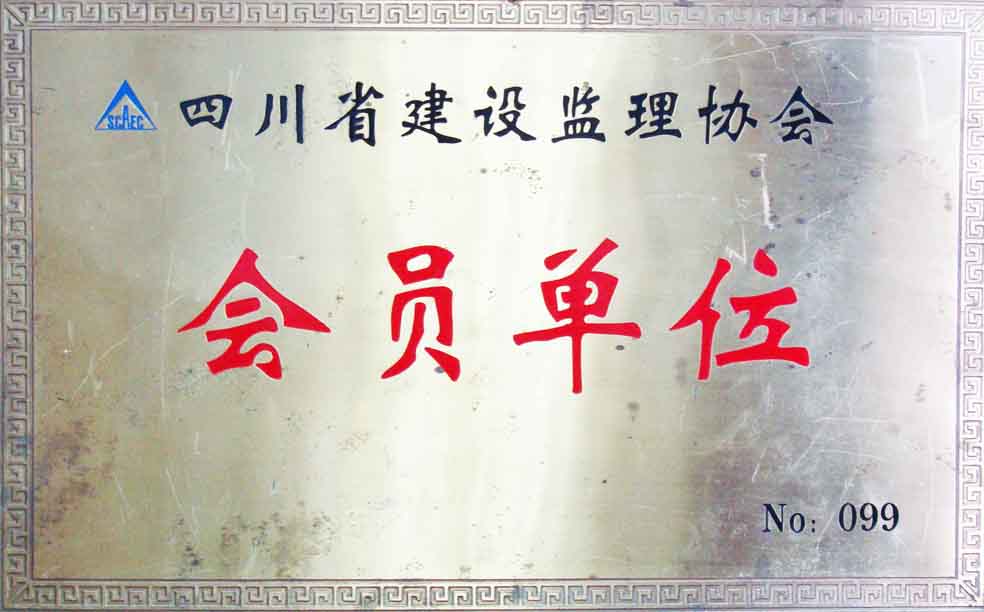 SCAEC 四川省建设监理协会
会员单位
No: 099